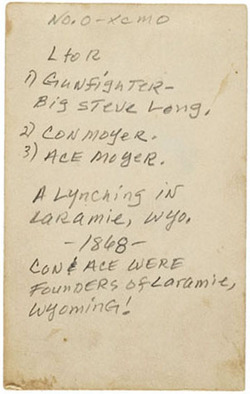 No. 0-XCMO
L to R
1) GUNFIGHTER-
Big STEVE Long.
2) CON MOYER.
3) ACE MOYER.
A LYNCHING IN
LARAMIE, WYO.
-1868-
CON & ACE WERE
FOUNDERS OF Laramie,
WYOMING!